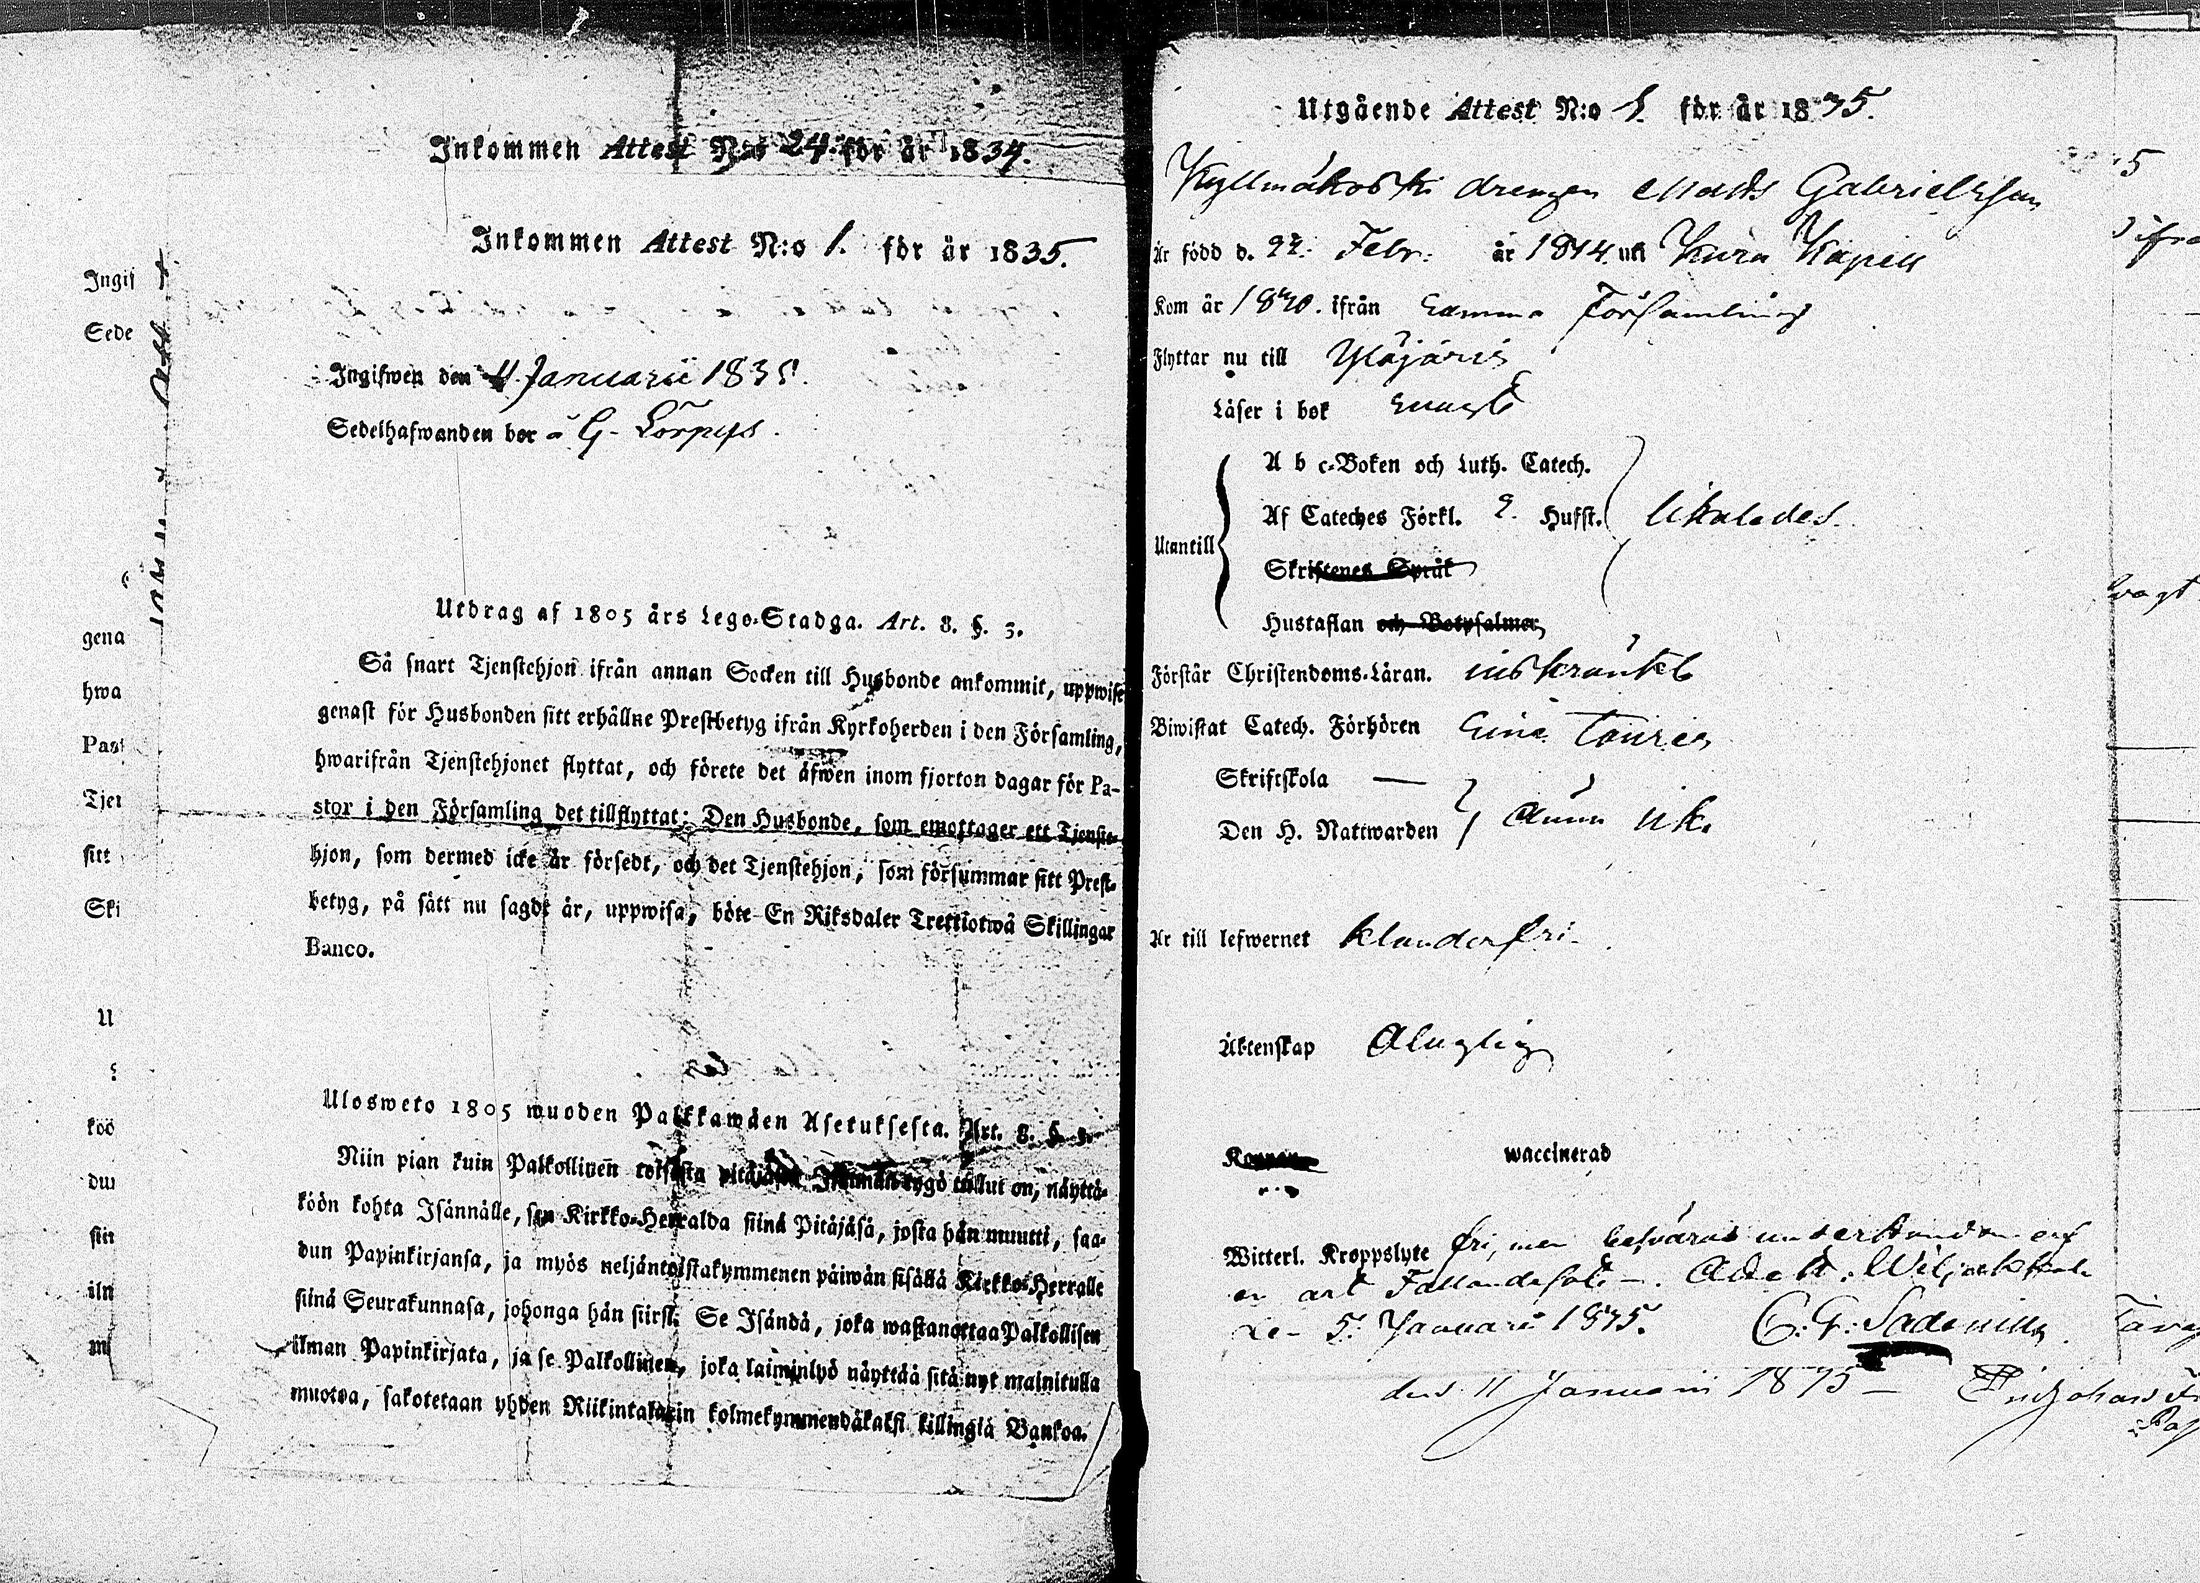 Inkommen Attest N:o 24. för år 1834.
Inkommen Attest N:o 1. för år 1835.
Ingifwen den 11 Januarii 1835.
Sedelhafwanden bor å G-
Utdrag af 1805 års Lego-Stadga. Art. 8. §. 3.
Så snart Tjenstehjon ifrån annan Socken till Husbonde ankommit, uppwise
genast för Husbonden sitt erhållne Prestbetyg ifrån Kyrkoherden i den Församling,
hwarifrån Tjenstehjonet flyttat, och förete det äfwen inom fjorton dagar för Pa-
stor i den Församling det tillflyttat; Den Husbonde, som emottager ett Tjenste-
hjon, som dermed icke är försedt, och det Tjenstehjon, som försummar sitt Prest-
betyg, på sätt nu sagdt är, uppwisa, böte En Riksdaler Trettiotwå Skillingar
Banco.
Ulosweto 1805 wuoden Palkkawäen Asetuksesta. Art. 8. §. 3.
Niin pian kuin Palkollinen toisesta pitäjästä Isännän tygö tullut on, näyttä-
köön kohta Isännälle, sen Kirkko-Herralda siinä Pitäjäsä, josta hän muutti, saa-
dun Papinkirjansa, ja myös neljäntoistakymmenen päiwän sisällä Kirkko-Herralle
siinä Seurakunnasa, johonga hän siirsi. Se Isändä, joka wastanottaa Palkollisen
ilman Papinkirjata, ja se Palkollinen, joka laiminlyö näyttää sitä nyt mainitulla
muotoa, sakotetaan yhden Riikintalarin kolmekymmendäkaksi killingiä Bankoa.
Ingif
Sede
gena
hwa
Past
Tjen
sitt
Ski
U
köö
dun
siin
ilm
m
Utgående Attest N:o 1. för år 1835.
Kyllmäkoski drengen Matts Gabrielsson
Är född d. 22. Febr. år 1814 uti Kapell
Kom år 1830. ifrån samma Församling
Flyttar nu till Ylöjärvi
Läser i bok svagt
A b c-Boken och Luth. Catech.
Af Cateches Förkl. 2. Hufst. likaledes
Utantill
Skriftenes Språk
Hustaflan och Botpsalmer,
Förstår Christendoms-Läran. inskränkt
Biwistat Catech. Förhören sine
Skriftskola —
Den H. Nattwarden
Är till lefwernet klanderfri
Äktenskap Oledig
Koppor waccinerad
Witterl. Kroppslyte fri, men besväras understundom af
en art Fallandesot —. Attest.
5. Januari 1835. C. G.
den 11 Januarii 1835 —